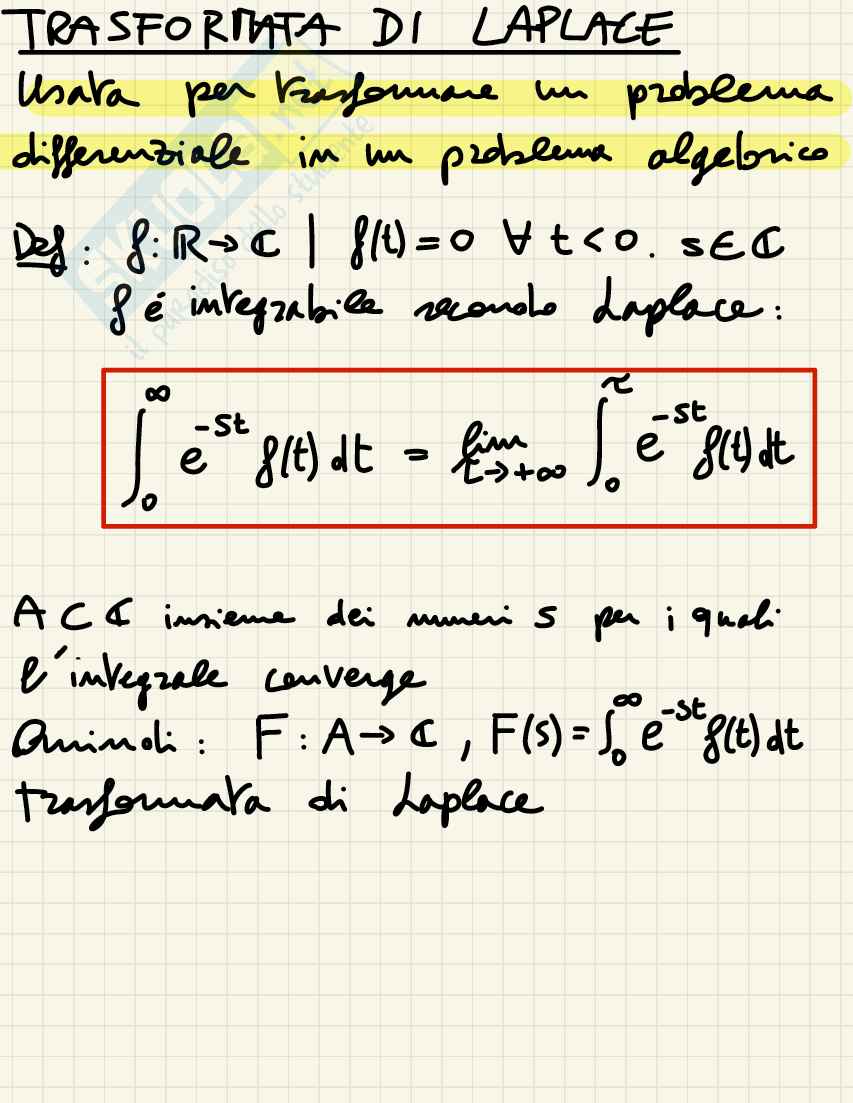 TRASFORMATA DI LAPLACE
Usata per trasformare un problema
differenziale in un problema algebrico
Def: f: ℝ→ℂ | f(t)=0 ∀ t<0. s∈ℂ
f é integrabile secondo Laplace:
∫₀^∞ e^{-st} f(t) dt = lim_{τ→+∞} ∫₀^τ e^{-st} f(t) dt
A ⊂ ℂ insieme dei numeri s per i quali
l'integrale converge
Quindi: F: A→ℂ, F(s)=∫₀^∞ e^{-st} f(t) dt
trasformata di Laplace
SKUOLA.net
il paradiso dello studente